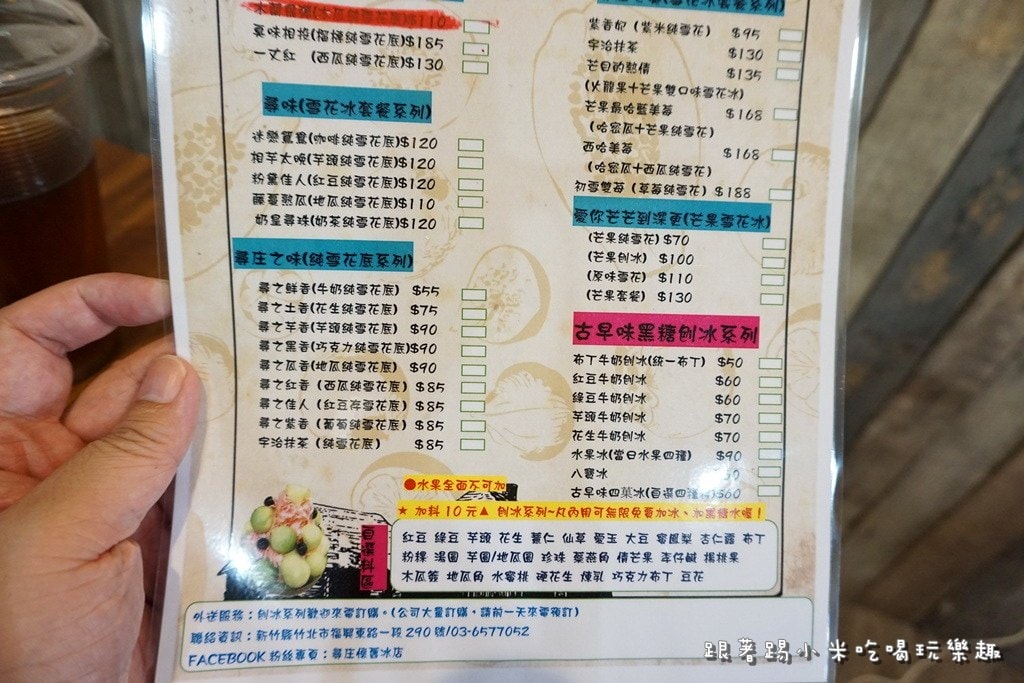 莫味相投(榴槤純雪花底)$185
一丈紅 (西瓜純雪花底)$130
尋味(雪花冰套餐系列)
迷戀鴛鴦(咖啡純雪花底)$120
相芋太晚(芋頭純雪花底)$120
粉黛佳人(紅豆純雪花底)$120
藤蔓熟瓜(地瓜純雪花底)$110
奶皇尋珠(奶茶純雪花底)$120
尋庄之味(純雪花底系列)
尋之鮮香(牛奶純雪花底) $55
尋之土香(花生純雪花底) $75
尋之芋香(芋頭純雪花底) $90
尋之黑香(巧克力純雪花底)$90
尋之瓜香(地瓜純雪花底) $90
尋之紅香 (西瓜純雪花底) $85
尋之佳人 (紅豆存雪花底) $85
尋之紫香 (葡萄純雪花底) $85
宇治抹茶 (純雪花底) $85
紫香妃 (紫米純雪花) $95
宇治抹茶 $130
芒目的熱情 $135
(火龍果十芒果雙口味雪花冰)
芒果曼哈藍美莓 $168
(哈密瓜十芒果純雪花)
西哈美莓 $168
(哈密瓜十西瓜純雪花)
初雪雙莓 (草莓純雪花) $188
愛你芒芒到深更(芒果雪花冰)
(芒果純雪花) $70
(芒果刨冰) $100
(原味雪花) $110
(芒果套餐) $130
古早味黑糖刨冰系列
布丁牛奶刨冰(統一布丁) $50
紅豆牛奶刨冰 $60
綠豆牛奶刨冰 $60
芋頭牛奶刨冰 $70
花生牛奶刨冰 $70
水果冰(當日水果四種) $90
八寶冰
古早味四菓冰(自選四種料)$60
●水果全面不可加
★ 加料 10 元▲ 刨冰系列~凡內用可無限免費加冰、加黑糖水喔!
自選配料區
紅豆 綠豆 芋頭 花生 薏仁 仙草 愛玉 大豆 蜜鳳梨 杏仁露 布丁
粉粿 湯圓 芋圓/地瓜圓 珍珠 粟燕角 情芒果 李仔鹹 楊桃果
木瓜簽 地瓜角 水蜜桃 硬花生 煉乳 巧克力布丁 豆花
外送服務:刨冰系列歡迎來電訂購。(公司大量訂購,請前一天來電預訂)
聯絡資訊:新竹縣竹北市福興東路一段 290 號/03-6577052
FACEBOOK 粉絲專頁:尋庄御暑冰店
跟著踢小米吃喝玩樂趣